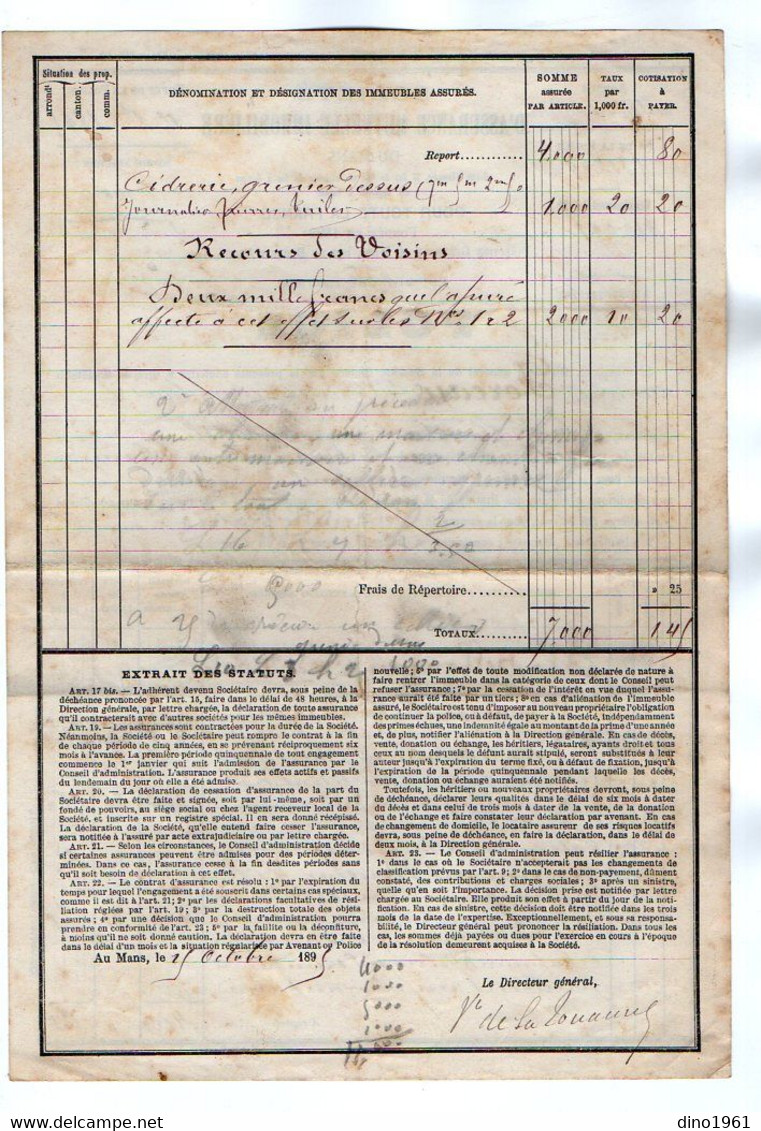 Situation des prop.
arrond¹
canton.
comm.
DÉNOMINATION ET DÉSIGNATION DES IMMEUBLES ASSURÉS.
SOMME
assurée
PAR ARTICLE.
TAUX
par
1,000 fr.
COTISATION
à
PAYER.
Report............ 4.000 80
Cidrerie, grenier dessus
1.000 20 20
Recours des Voisins
Deux mille francs que l'assuré
affecte à cet effet sur les Nos 1 à 2 2000 10 20
Frais de Répertoire.......... » 25
TOTAUX...... 7000
EXTRAIT DES STATUTS.
ART. 17 bis. — L'adhérent devenu Sociétaire devra, sous peine de la
déchéance prononcée par l'art. 15, faire dans le délai de 48 heures, à la
Direction générale, par lettre chargée, la déclaration de toute assurance
qu'il contracterait avec d'autres sociétés pour les mêmes immeubles.
ART. 19. — Les assurances sont contractées pour la durée de la Société.
Néanmoins, la Société ou le Sociétaire peut rompre le contrat à la fin
de chaque période de cinq années, en se prévenant réciproquement six
mois à l'avance. La première période quinquennale de tout engagement
commence le 1er janvier qui suit l'admission de l'assurance par le
Conseil d'administration. L'assurance produit ses effets actifs et passifs
du lendemain du jour où elle a été admise.
ART. 20. — La déclaration de cessation d'assurance de la part du
Sociétaire devra être faite et signée, soit par lui-même, soit par un
fondé de pouvoirs, au siège social ou chez l'agent receveur local de la
Société, et inscrite sur un registre spécial. Il en sera donné récépissé.
La déclaration de la Société, qu'elle entend faire cesser l'assurance,
sera notifiée à l'assuré par acte extrajudiciaire ou par lettre chargée.
ART. 21. — Selon les circonstances, le Conseil d'administration décide
si certaines assurances peuvent être admises pour des périodes déter-
minées. Dans ce cas, l'assurance cesse à la fin desdites périodes sans
qu'il soit besoin de déclaration à cet effet.
ART. 22. — Le contrat d'assurance est résolu : 1º par l'expiration du
temps pour lequel l'engagement a été souscrit dans certains cas spéciaux,
comme il est dit à l'art. 21; 2º par les déclarations facultatives de rési-
liation réglées par l'art. 19; 3º par la destruction totale des objets
assurés ; 4º par une décision que le Conseil d'administration pourra
prendre en conformité de l'art. 23 ; 5º par la faillite ou la déconfiture,
à moins qu'il ne soit donné caution. La déclaration devra en être faite
dans le délai d'un mois et la situation régularisée par Avenant ou Police
nouvelle; 6º par l'effet de toute modification non déclarée de nature à
faire rentrer l'immeuble dans la catégorie de ceux dont le Conseil peut
refuser l'assurance; 7º par la cessation de l'intérêt en vue duquel l'assu-
rance aurait été faite par un tiers; 8º en cas d'aliénation de l'immeuble
assuré, le Sociétaire est tenu d'imposer au nouveau propriétaire l'obligation
de continuer la police, ou à défaut, de payer à la Société, indépendamment
des primes échues, une indemnité égale au montant de la prime d'une année
et, de plus, notifier l'aliénation à la Direction générale. En cas de décès,
vente, donation ou échange, les héritiers, légataires, ayants droit et tous
ceux au nom desquels le défunt aurait stipulé, seront substitués à leur
auteur jusqu'à l'expiration du terme fixé, ou à défaut de fixation, jusqu'à
l'expiration de la période quinquennale pendant laquelle les décès,
vente, donation ou échange auraient été notifiés.
Toutefois, les héritiers ou nouveaux propriétaires devront, sous peine
de déchéance, déclarer leurs qualités dans le délai de six mois à dater
du décès et dans celui de trois mois à dater de la vente, de la donation
ou de l'échange et faire constater leur déclaration par avenant. En cas
de changement de domicile, le locataire assureur de ses risques locatifs
devra, sous peine de déchéance, en faire la déclaration, dans le délai de
deux mois, à la Direction générale.
ART. 23. — Le Conseil d'administration peut résilier l'assurance :
1º dans le cas où le Sociétaire n'accepterait pas les changements de
classification prévus par l'art. 9; 2º dans le cas de non-payement, dûment
constaté, des contributions et charges sociales ; 3º après un sinistre,
quelle qu'en soit l'importance. La décision prise est notifiée par lettre
chargée au Sociétaire. Elle produit son effet à partir du jour de la noti-
fication. En cas de sinistre, cette décision doit être notifiée dans les trois
mois de la date de l'expertise. Exceptionnellement, et sous sa responsa-
bilité, le Directeur général peut prononcer la résiliation. Dans tous les
cas, les sommes déjà payées ou dues pour l'exercice en cours à l'époque
de la résolution demeurent acquises à la Société.
Au Mans, le 25 Octobre 1895
4000
1000
5000
1000
Le Directeur général,
dino1961